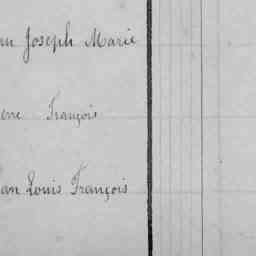 Joseph Marie
François
Louis François